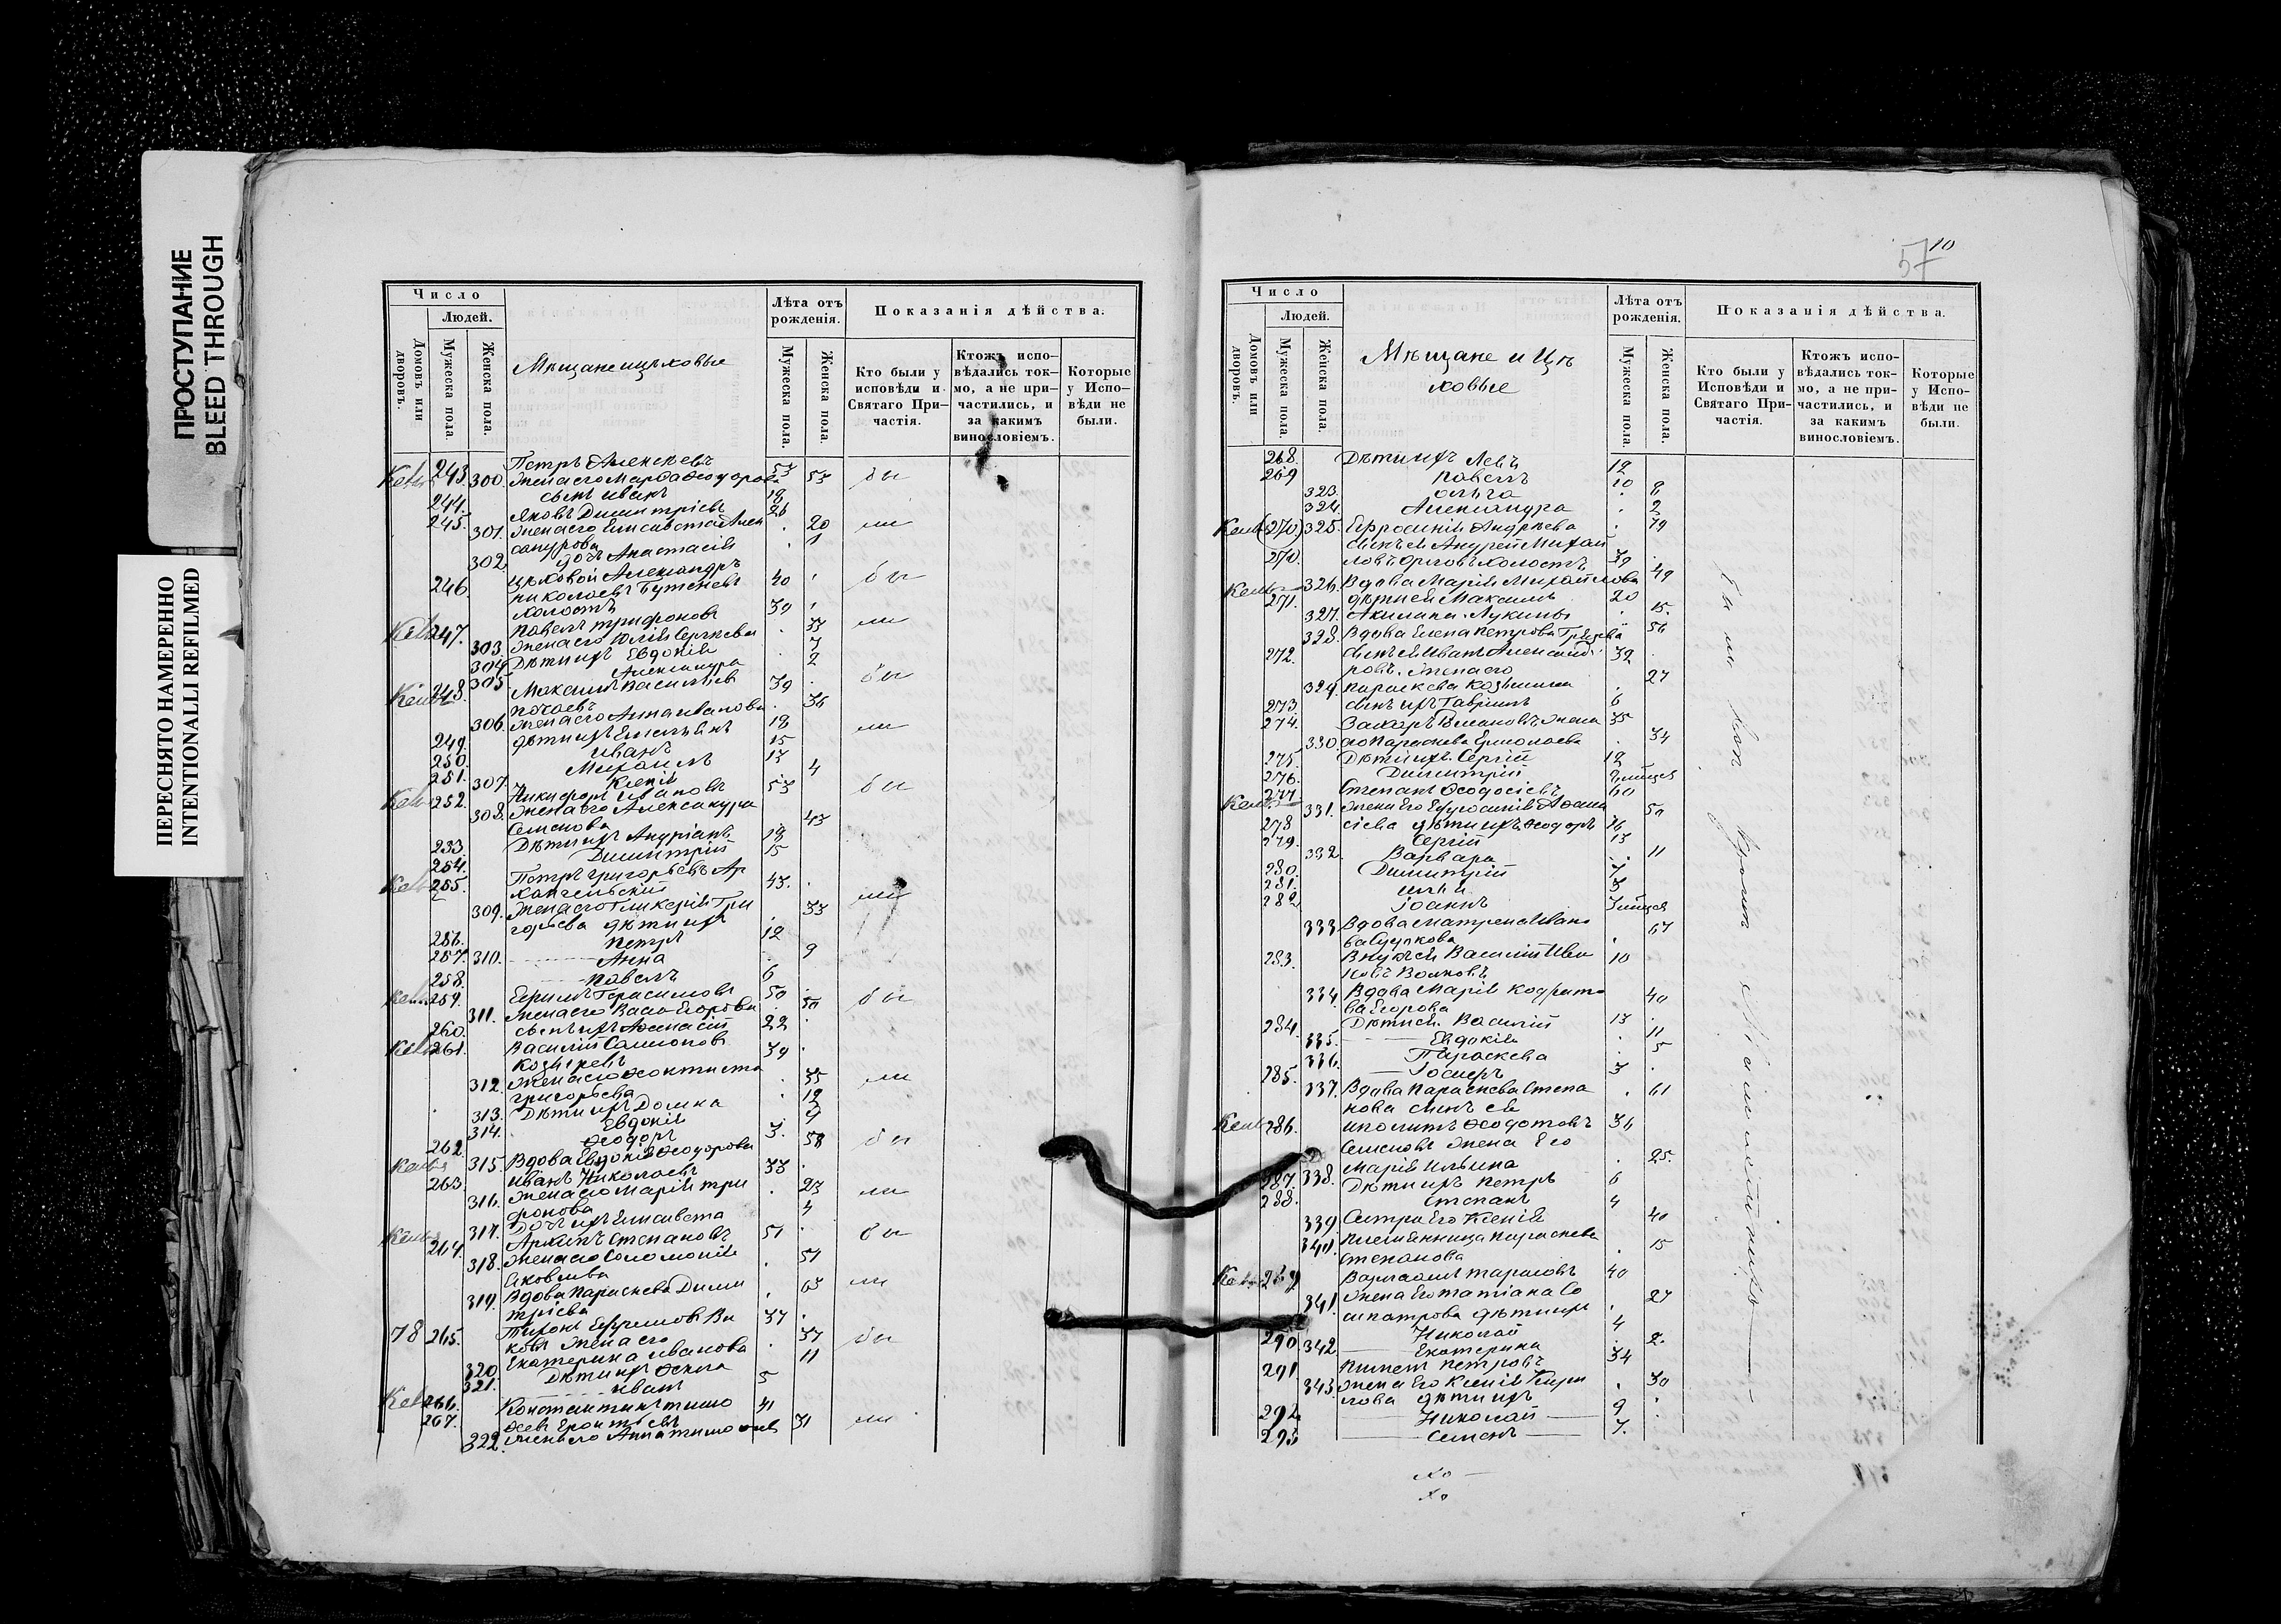 ПРОСТУПАНИЕ
BLEED THROUGH
ПЕРЕСНЯТО НАМЕРЕННО
INTENTIONALLI REFILMED
Число
Людей.
Домовъ или дворовъ.
Мужеска пола.
Женска пола.
Мѣщане и цѣховые
Лѣта отъ рожденія.
Мужеска пола.
Женска пола.
Показанія дѣйства.
Кто были у исповѣди и Святаго Причастія.
Ктожъ исповѣдались токмо, а не причастились, и за какимъ винословіемъ.
Которые у Исповѣди не были.
243. Петръ Алексѣевъ 53
300. Жена его Марѳа Ѳеодорова 53 бы
244. сынъ Иванъ 18
245. Яковъ Димитріевъ 26
301. Жена его Елисавета Алек 20 ли
сандрова
302. дочь Анастасія 1
цѣховой Александръ
246. Николаевъ 40 бы
холостъ
247. Павелъ Трифоновъ 39 ли
303. Жена его Юлія Сергѣева 33
304. Дѣти ихъ Евдокія 7
305. Александра 2
248. Максимъ Васильевъ 39 бы
306. Жена его Анна Иванова 36
249. дѣти ихъ Емельянъ 18 ли
250. Иванъ 15
251. Михаилъ 13
307. Ксенія 4
252. Никифоръ Ивановъ 53 бы
308. Жена его Александра 43
Семенова
233. Дѣти ихъ Андріанъ 18
254. Димитрій 15
255. Петръ Григорьевъ Ар
хангельский 43.
309. Жена его Гликерія Гри 33 ли
горьева дѣти ихъ
256. Петръ 12
257. 310. Анна 9
258. Павелъ 6
259. Ефимъ Герасимовъ 50 бы
311. Жена его Васса Егорова 50
260. сынъ ихъ Аѳанасій 22
261. Василій Самсоновъ 39
Козыревъ
312. Жена его Ѳеоктиста 35 ли
Григорьева
313. Дѣти ихъ Домна 12
314. Евдокія 9
262. Ѳеодоръ 3.
315. Вдова Евдокія Ѳеодорова 58 бы
263. Иванъ Николаевъ 33
316. Жена его Марія Три 23 ли
фонова
317. Дочь ихъ Елисавета 4
264. Архипъ Степановъ 51 бы
318. Жена его Соломонія 51
Яковлева
319. Вдова Параскева Дими 63 ли
тріева
78 265. Тихонъ Ефремовъ Ви 37
ковъ Жена его
320. Екатерина Иванова 37 бы
321. Дѣти ихъ Ѳекла 11
Иванъ 5
266. Константинъ Тимо 41
267. ѳеевъ
322. Жена его Анна Тимоѳеева 31 ли
57 10
Число
Людей.
Домовъ или дворовъ.
Мужеска пола.
Женска пола.
Мѣщане и Цѣ
ховые
Лѣта отъ рожденія.
Мужеска пола.
Женска пола.
Показанія дѣйства.
Кто были у Исповѣди и Святаго Причастія.
Ктожъ исповѣдались токмо, а не причастились, и за какимъ винословіемъ.
Которые у Исповѣди не были.
268. Дѣти ихъ Левъ 12
269 Павелъ 10
323. Ольга 8
324. Александра 2
(270) 325. Ефросинія Андрѣева 79
сынъ ея Андрей Михай
270. ловъ холостъ 39
326. Вдова Марія Михайлова 49
271. дѣти ея Максимъ 20
327. Акилина Лукины 15.
328. Вдова Елена Петрова 56
272. сынъ ея Иванъ Александ 32
ровъ. Жена его
329. Параскева Козьмина 27
273. сынъ ихъ Гавріилъ 6
274. Захаръ Жена 35
330. его Параскева Ермолаева 34
275. Дѣти ихъ Сергій 12
276. Димитрій
277. Степанъ Ѳеодосіевъ 60
331. Жена его Ефросинія Аѳана 50
278 сіева дѣти ихъ Ѳеодоръ 16
279. Сергій 13
332. Варвара 11
280. Димитрій 7
281. Илья 3
282. Іоаннъ
333 Вдова Матрена Ивано 67
ва
283. Внукъ ея Василій Ива 10
новъ Волковъ
334. Вдова Марія Кодрато 40
ва Егорова
284. Дѣти ея Василій 13
335. Евдокія 11
336. Параскева 5
285. 3
337. Вдова Параскева Степа 61
нова сынъ ея
286. Иполитъ Ѳедотовъ 36
Семеновъ жена его
338. Марія Ильина 25.
287. Дѣти ихъ Петръ 6
288. Степанъ 4
339 Сестра его Ксенія 40
340. Племянница Параскева 15
Степанова
289 Варлаамъ Тарасовъ 40
341. Жена его Татіана Со 27
сипатрова дѣти ихъ
290 Николай 4
342 Екатерина 2.
291 Пименъ Петровъ 34
343. Жена его Ксенія Кири 30
лова дѣти ихъ
292 Николай 9
293 Семенъ 7.
Были кромѣ